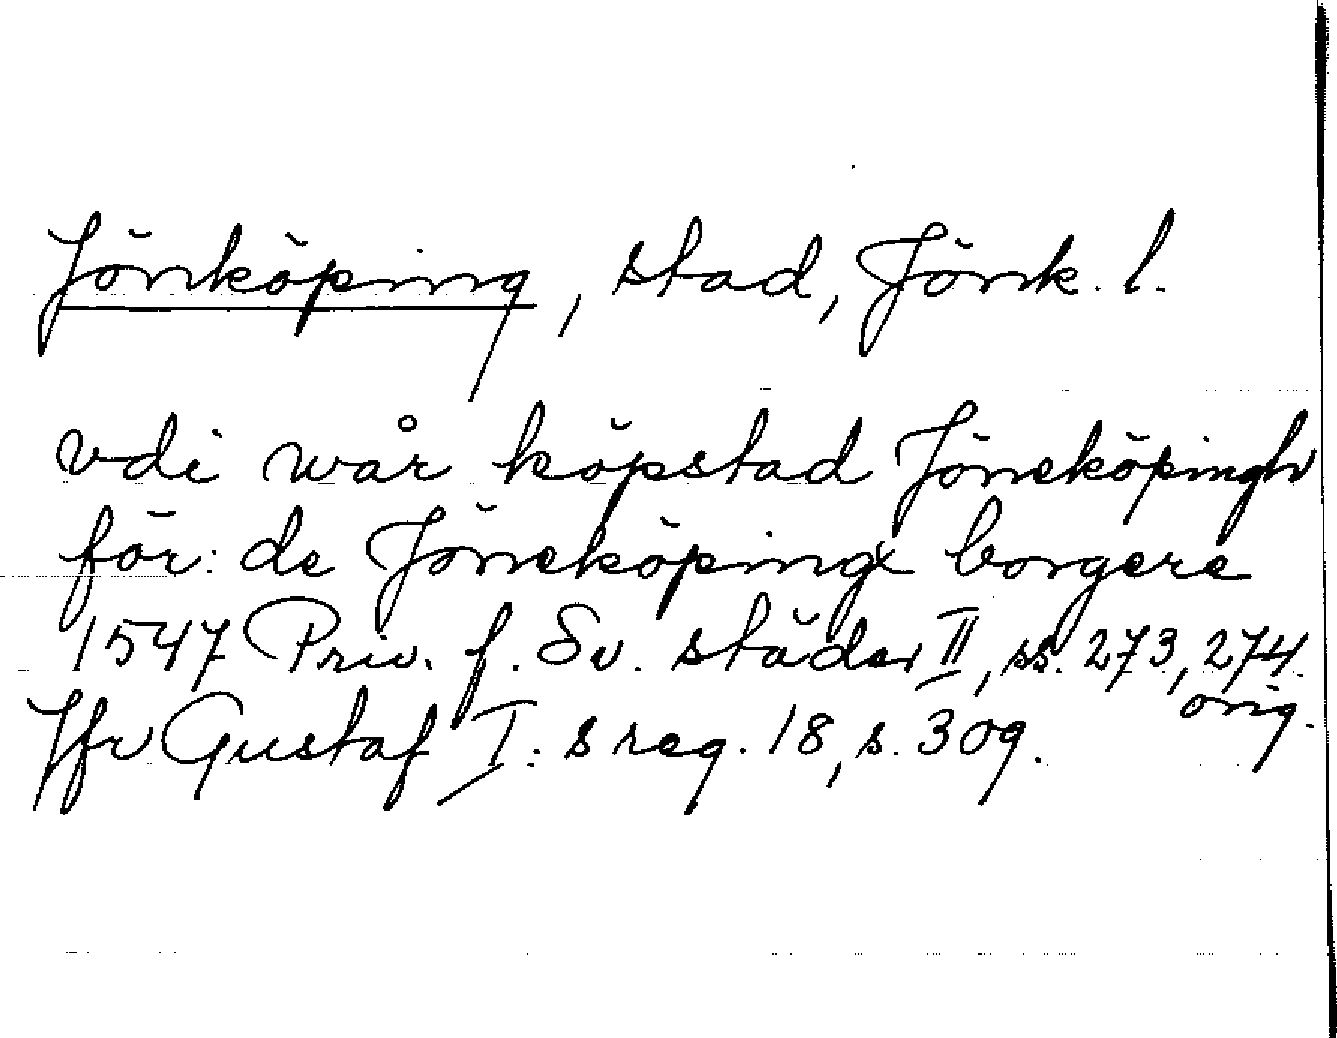 Jönköping, stad, Jönk. l.
vdi wår köpstad Jöneköpingh
för: de Jöneköpingx borgere
1547 Priv. f. Sv. städer II, ss. 273, 274.
orig.
Jfr Gustaf I:s reg. 18, s. 309.